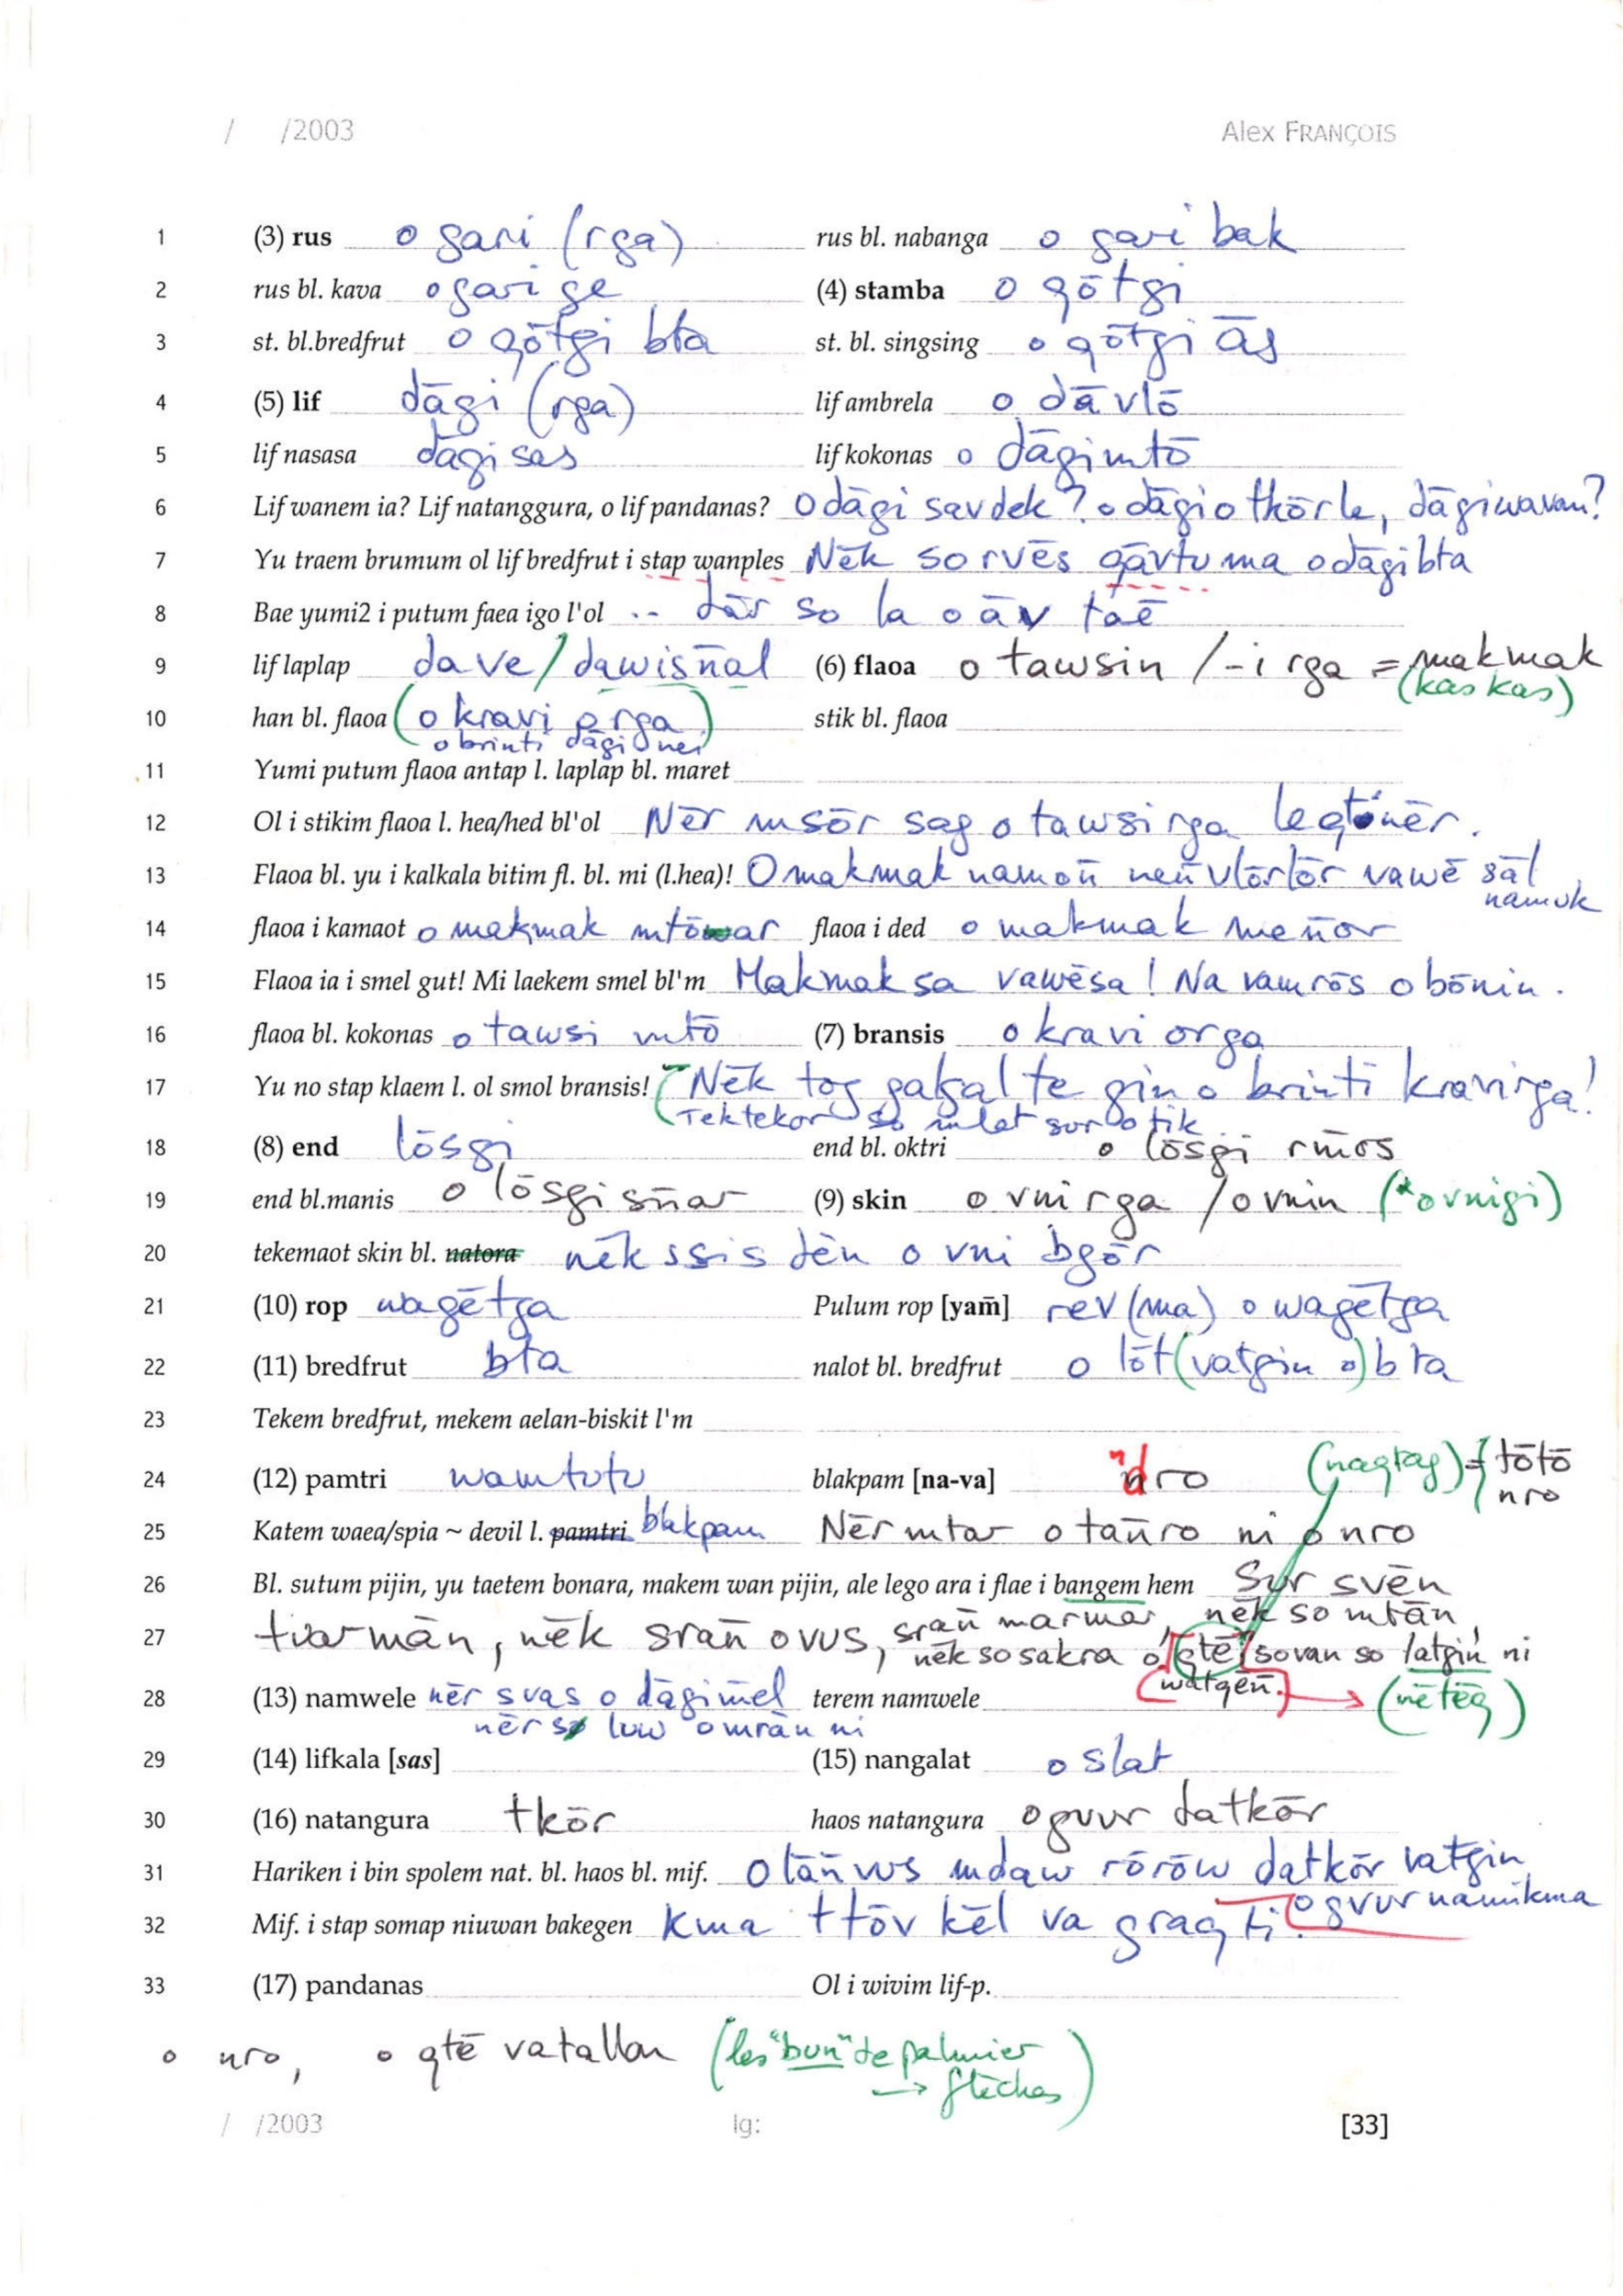 / /2003 Alex FRANÇOIS
1 (3) rus o gari (rga) rus bl. nabanga o gari bak
2 rus bl. kava o gari ge (4) stamba o qōtgi
3 st. bl.bredfrut o qōtgi bta st. bl. singsing o qōtgi ās
4 (5) lif dāgi (rga) lif ambrela o dāvlō
5 lif nasasa dāgi sas lif kokonas o dāgimtō
6 Lif wanem ia? Lif natanggura, o lif pandanas? O dāgi savdek? o dāgi o tkōr le, dāgiwavan?
7 Yu traem brumum ol lif bredfrut i stap wanples Nēk so rvēs qāvtuma o dāgibta
8 Bae yumi2 i putum faea igo l'ol .. dār so la o āv taē
9 lif laplap dave/dawisn̄al (6) flaoa o tawsin /-i rga = makmak
(kaskas)
10 han bl. flaoa (o kravi o rga) stik bl. flaoa
o brinti dāgi nei
11 Yumi putum flaoa antap l. laplap bl. maret
12 Ol i stikim flaoa l. hea/hed bl'ol Nēr msōr sag o tawsirga leqtinēr.
13 Flaoa bl. yu i kalkala bitim fl. bl. mi (l.hea)! O makmak namōn̄ nen̄ vlōrlōr vawē sāl
namuk
14 flaoa i kamaot o makmak mtōwar flaoa i ded o makmak men̄or
15 Flaoa ia i smel gut! Mi laekem smel bl'm Makmak sa vawēsa! Na vamrōs o bōnin.
16 flaoa bl. kokonas o tawsi mtō (7) bransis o kravi orga
17 Yu no stap klaem l. ol smol bransis! Nēk tog gakal te gin o brinti kravirga!
(Tektekor so mlat sur o tik
18 (8) end lōsgi end bl. oktri o lōsgi rm̄os
19 end bl.manis o lōsgi sn̄ar (9) skin o vnirga / o vnin (*ovnigi)
20 tekemaot skin bl. natora nēk ssis dēn o vni bgōr
21 (10) rop wagētga Pulum rop [yam̄] rev (ma) o wagētga
22 (11) bredfrut bta nalot bl. bredfrut o lōt (vatgin o) bta
23 Tekem bredfrut, mekem aelan-biskit l'm
24 (12) pamtri wamtutu blakpam [na-va] ndro (nagtag) = tōtō
nro
25 Katem waea/spia ~ devil l. pamtri blakpam Nēr mtar o tan̄ro ni o nro
26 Bl. sutum pijin, yu taetem bonara, makem wan pijin, ale lego ara i flae i bangem hem Sur svēn
27 tvarmān, nēk sran̄ ovus, sran̄ marmar, nēk so mtān,
nēk so sakra o qtē sovan so latgin ni
(watgēn) → (nētēq)
28 (13) namwele nēr svas o dāgim̄el terem namwele
nēr so luw o mrān ni
29 (14) lifkala [sas] (15) nangalat o slat
30 (16) natangura tkōr haos natangura o gvur datkōr
31 Hariken i bin spolem nat. bl. haos bl. mif. O lān̄ vus mdaw rōrōw datkōr vatgin
o gvur namikma
32 Mif. i stap somap niuwan bakegen Kma ttōv kēl va gragti.
33 (17) pandanas Ol i wivim lif-p.
o nro, o qtē vatallan (les "bun" de palmier
→ flèches)
/ /2003 lg: [33]